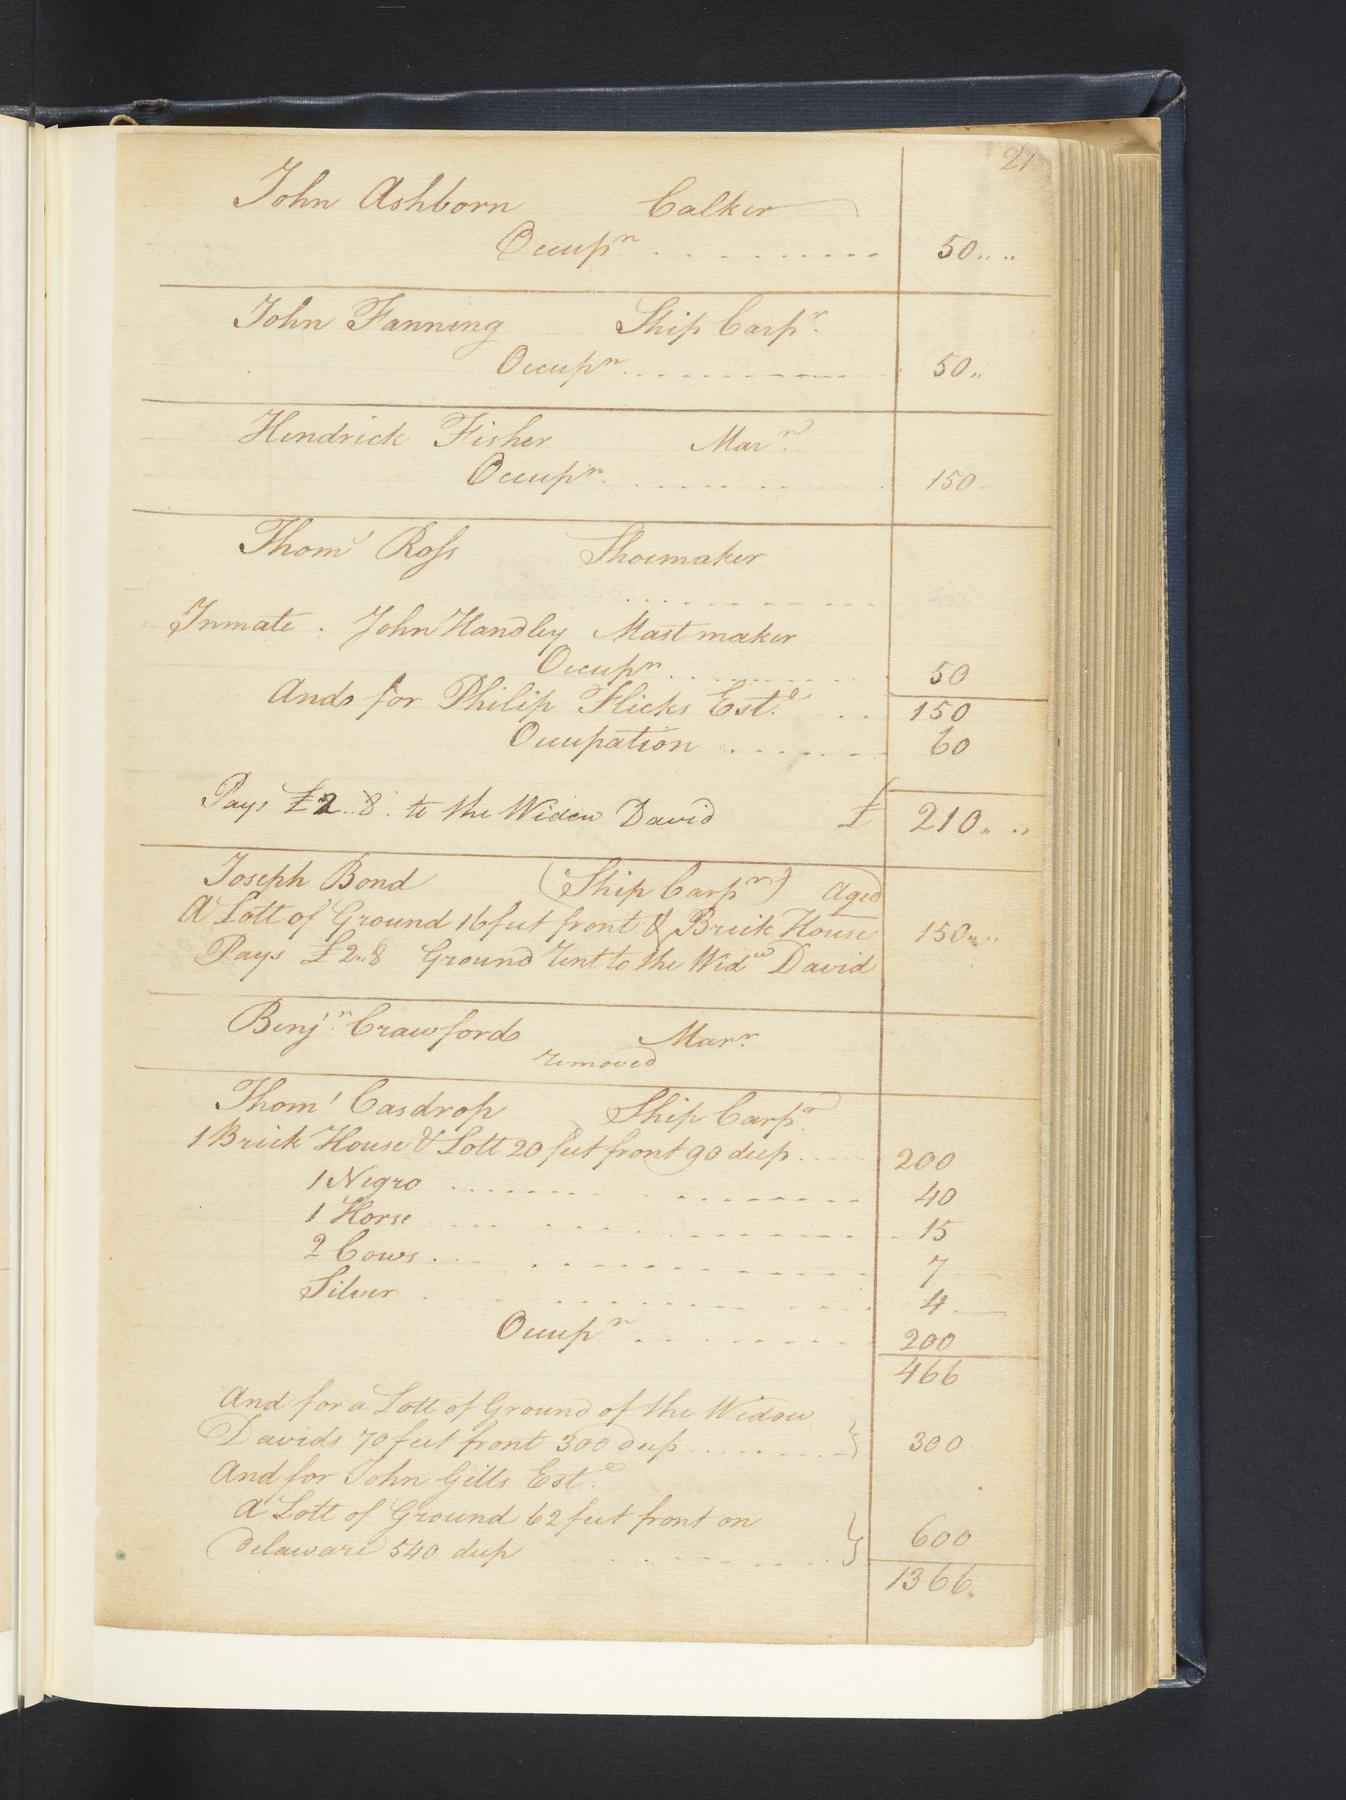 21
John Ashborn Calker
Occupn 50
John Fanning Ship Carpr.
Occupn 50
Hendrick Fisher Marr.
Occupn. 150
Thoms Ross Shoemaker
Inmate. John Handley Mast maker
Occupn 50
Ands for Philip Flicks Est.e 150
Occupation 60
Pays £2..8. to the Widow David £ 210
Joseph Bond (Ship Carpr) Aged
A Lott of Ground 16 feet front & Brick House 150
Pays £2..8 Ground Rent to the Widw David
Benj.n Crawford Marr.
removed
Thoms Casdrop Ship Carpr.
1 Brick House & Lott 20 feet front 90 deep 200
1 Negro 40
1 Horse 15
2 Cows 7
Silver 4
Occupn 200
466
And for a Lott of Ground of the Widow
Davids 70 feet front 300 deep } 300
And for John Gills Est.e
A Lott of Ground 62 feet front on
Delaware 540 deep } 600
1366